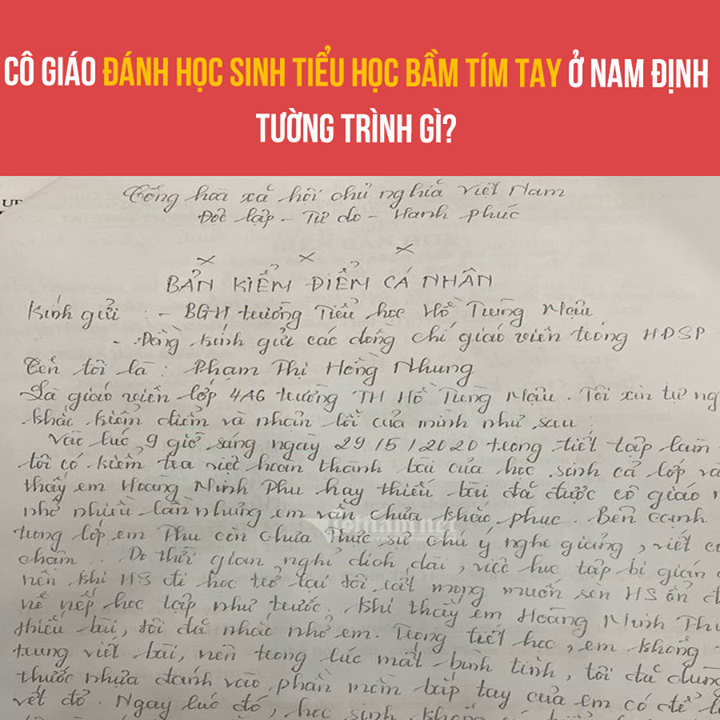 CÔ GIÁO ĐÁNH HỌC SINH TIỂU HỌC BẦM TÍM TAY Ở NAM ĐỊNH
TƯỜNG TRÌNH GÌ?
Cộng hòa xã hội chủ nghĩa Việt Nam
Độc lập - Tự do - Hạnh phúc
BẢN KIỂM ĐIỂM CÁ NHÂN
Kính gửi : - BGH trường Tiểu học Hồ Tùng Mậu
- Đồng kính gửi các đồng chí giáo viên trong HĐSP
Tên tôi là : Phạm Thị Hồng Nhung
Là giáo viên lớp 4A6 trường TH Hồ Tùng Mậu. Tôi xin tự ng
khắc kiểm điểm và nhận lỗi của mình như sau:
Vào lúc 9 giờ sáng ngày 29/5/2020 trong tiết tập làm
tôi có kiểm tra việc hoàn thành bài của học sinh cả lớp và
thấy em Hoàng Minh Phu hay thiếu bài đã được cô giáo n
nhở nhiều lần nhưng em vẫn chưa khắc phục. Bên cạnh
trong lớp em Phu còn chưa thực sự chú ý nghe giảng, viết c
chậm. Do thời gian nghỉ dịch dài, việc học tập bị gián đ
nên khi HS đi học trở lại tôi rất mong muốn rèn HS ổn đ
nề nếp học tập như trước. Khi thấy em Hoàng Minh Thu
thiếu bài, tôi đã nhắc nhở em. Trong tiết học, em không t
trung viết bài, nên trong lúc mất bình tĩnh, tôi đã dùng
thước nhựa đánh vào phần mềm bắp tay của em có để l
vết đỏ. Ngay lúc đó, học sinh không có
Vietnamnet